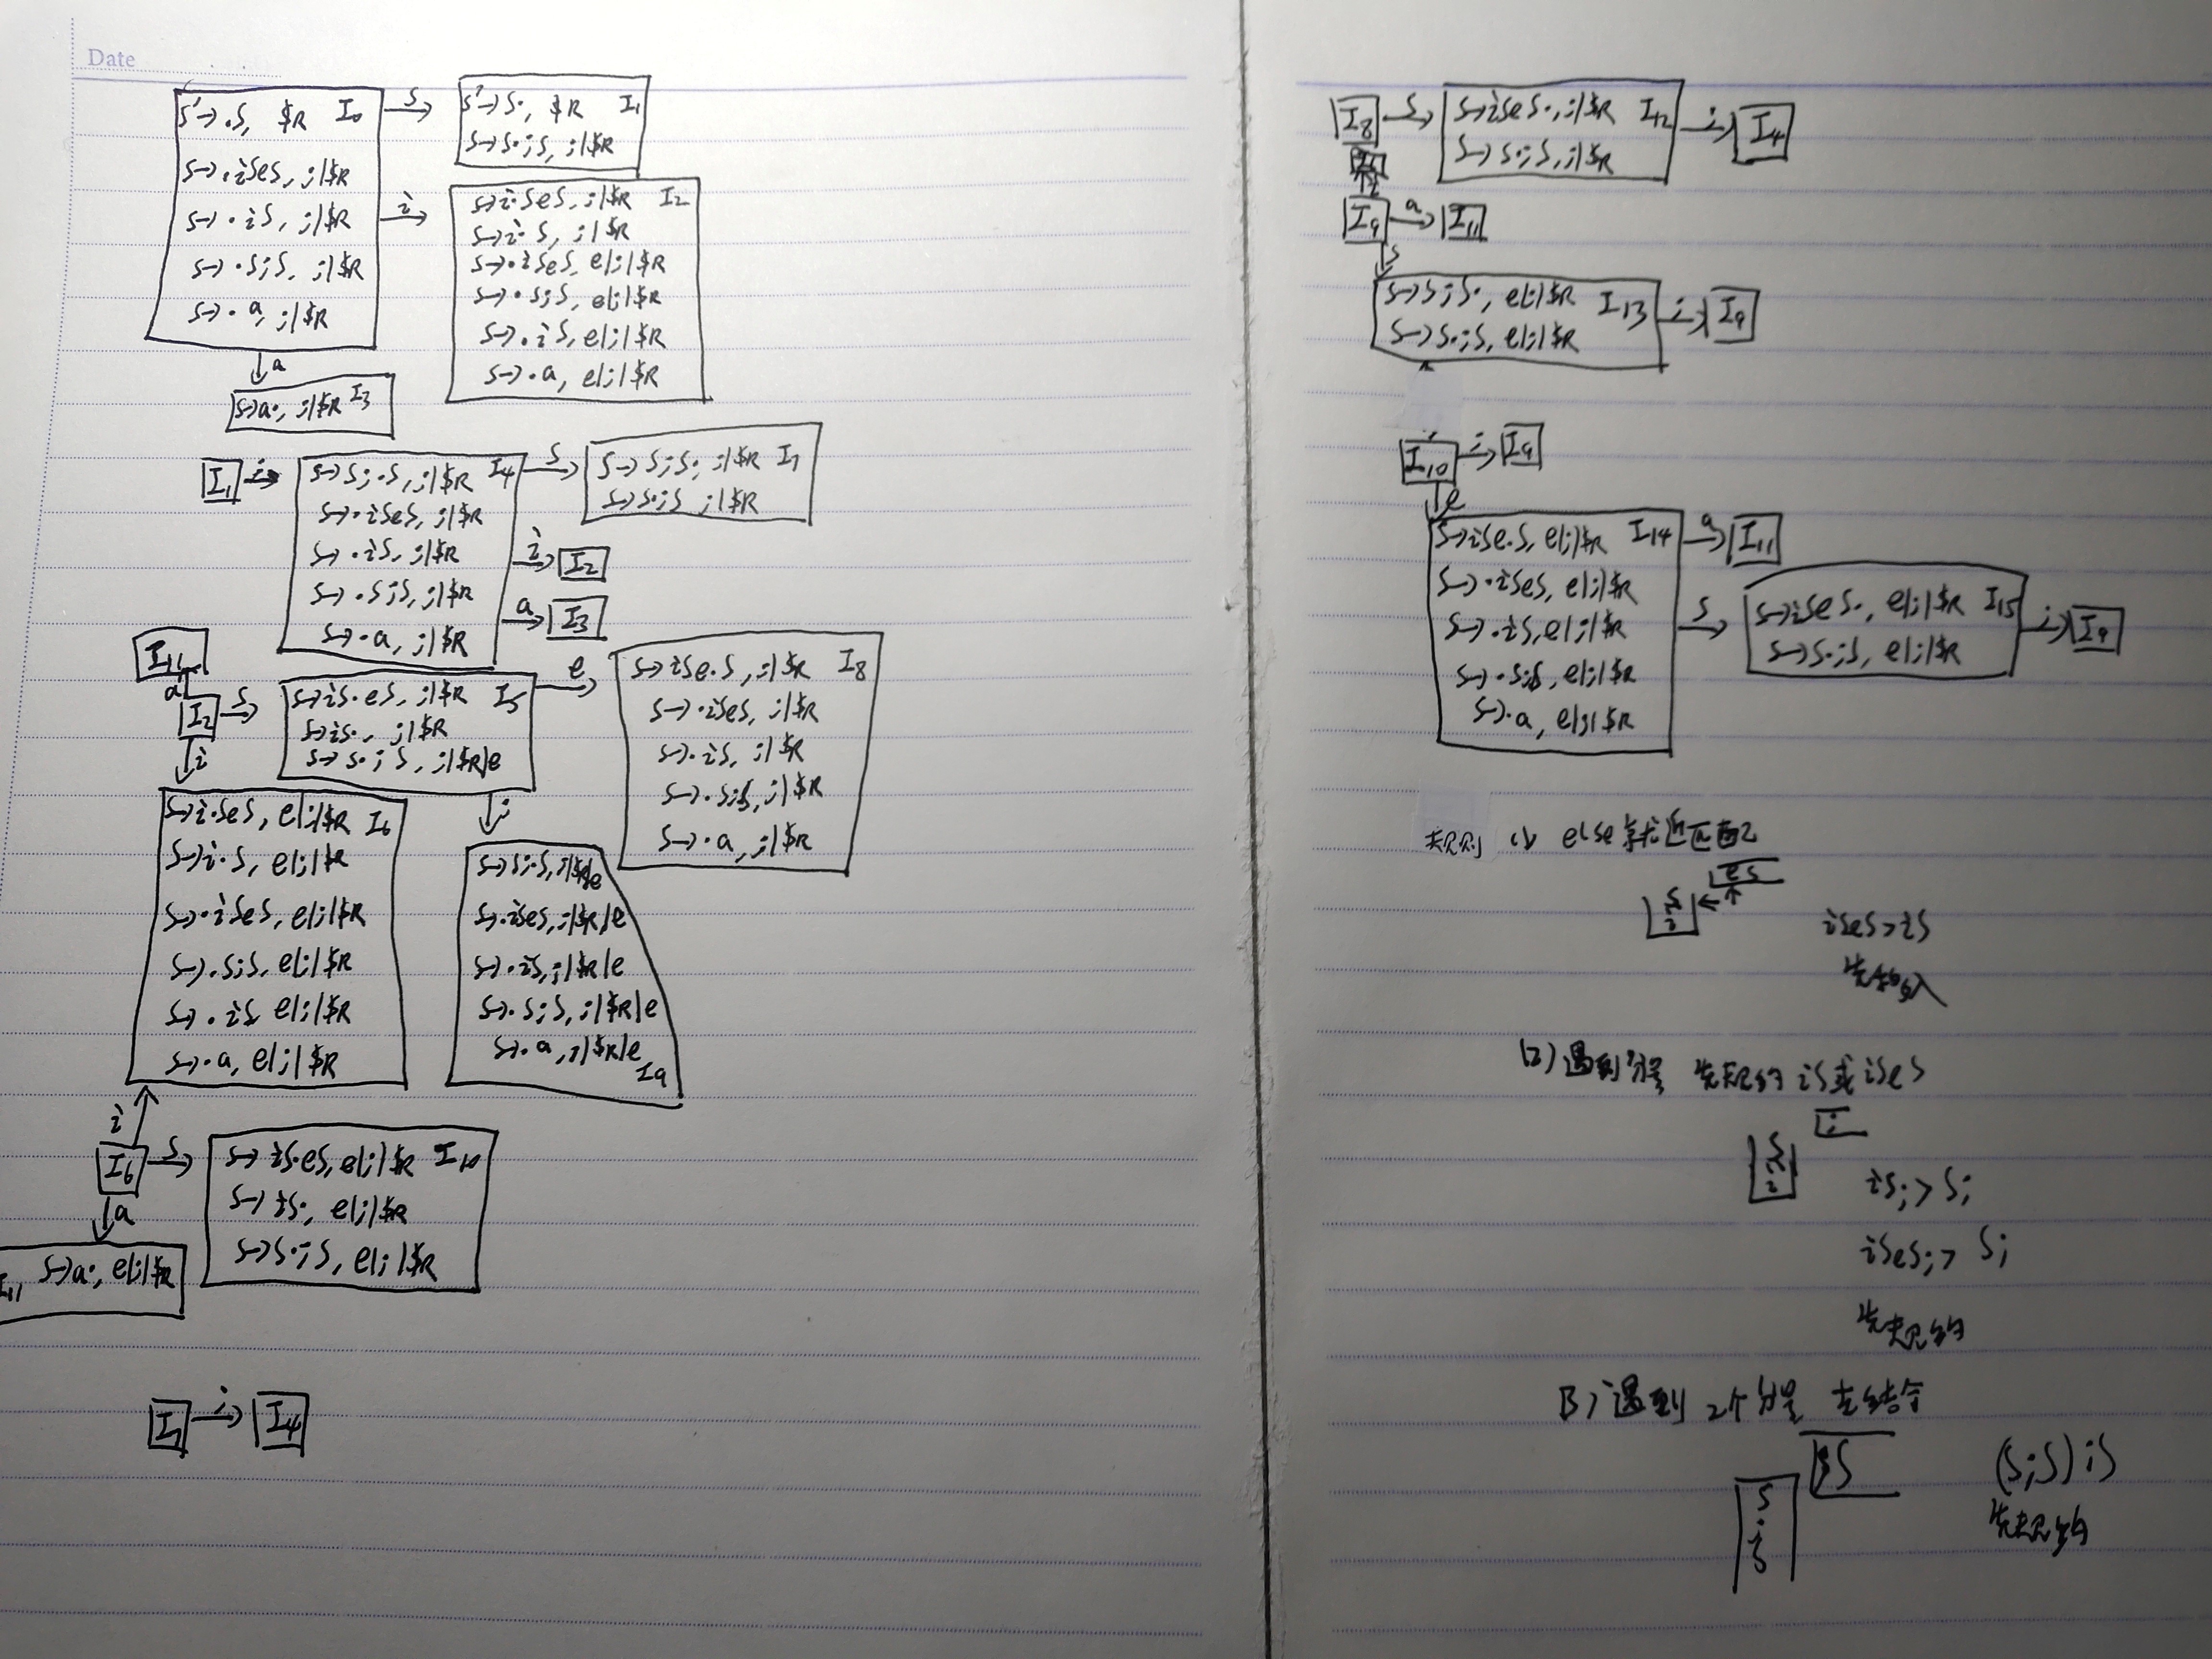 Date
S'→.S, $R I0
S→.iSeS, ;|$R
S→.iS, ;|$R
S→.S;S, ;|$R
S→.a, ;|$R
S
S'→S., $R I1
S→S.;S, ;|$R
i
S→i.SeS, ;|$R I2
S→i.S, ;|$R
S→.iSeS, e|;|$R
S→.S;S, e|;|$R
S→.iS, e|;|$R
S→.a, e|;|$R
a
S→a., ;|$R I3
I1 ;
S→S;.S, ;|$R I4
S→.iSeS, ;|$R
S→.iS, ;|$R
S→.S;S, ;|$R
S→.a, ;|$R
S
S→S;S. ;|$R I7
S→S.;S ;|$R
i I2
a I3
I11
a
I2 S
i
S→iS.eS, ;|$R I5
S→iS., ;|$R
S→S.;S, ;|$R|e
e
S→iSe.S, ;|$R I8
S→.iSeS, ;|$R
S→.iS, ;|$R
S→.S;S, ;|$R
S→.a, ;|$R
;
S→i.SeS, e|;|$R I6
S→i.S, e|;|$R
S→.iSeS, e|;|$R
S→.S;S, e|;|$R
S→.iS e|;|$R
S→.a, e|;|$R
S→S;.S, ;|$R|e
S→.iSeS, ;|$R|e
S→.iS, ;|$R|e
S→.S;S, ;|$R|e
S→.a, ;|$R|e
I9
i
I6 S
a
S→iS.eS, e|;|$R I10
S→iS., e|;|$R
S→S.;S, e|;|$R
I11 S→a., e|;|$R
I7 ; I4
I8 S
S→iSeS., ;|$R I12
S→S.;S, ;|$R
; I4
I9 a I11
S
S→S;S., e|;|$R I13
S→S.;S, e|;|$R
; I9
I10 ; I9
e
S→iSe.S, e|;|$R I14
S→.iSeS, e|;|$R
S→.iS, e|;|$R
S→.S;S, e|;|$R
S→.a, e|;|$R
a I11
S
S→iSeS., e|;|$R I15
S→S.;S, e|;|$R
; I9
规则 (1) else就近匹配
eS
S
i
iSeS>iS
先移入
(2) 遇到分号 先规约 iS或iSeS
;
S
i
iS;>S;
iSeS;>S;
先规约
(3) 遇到2个分号 左结合
;S
S
;
S
(S;S);S
先规约